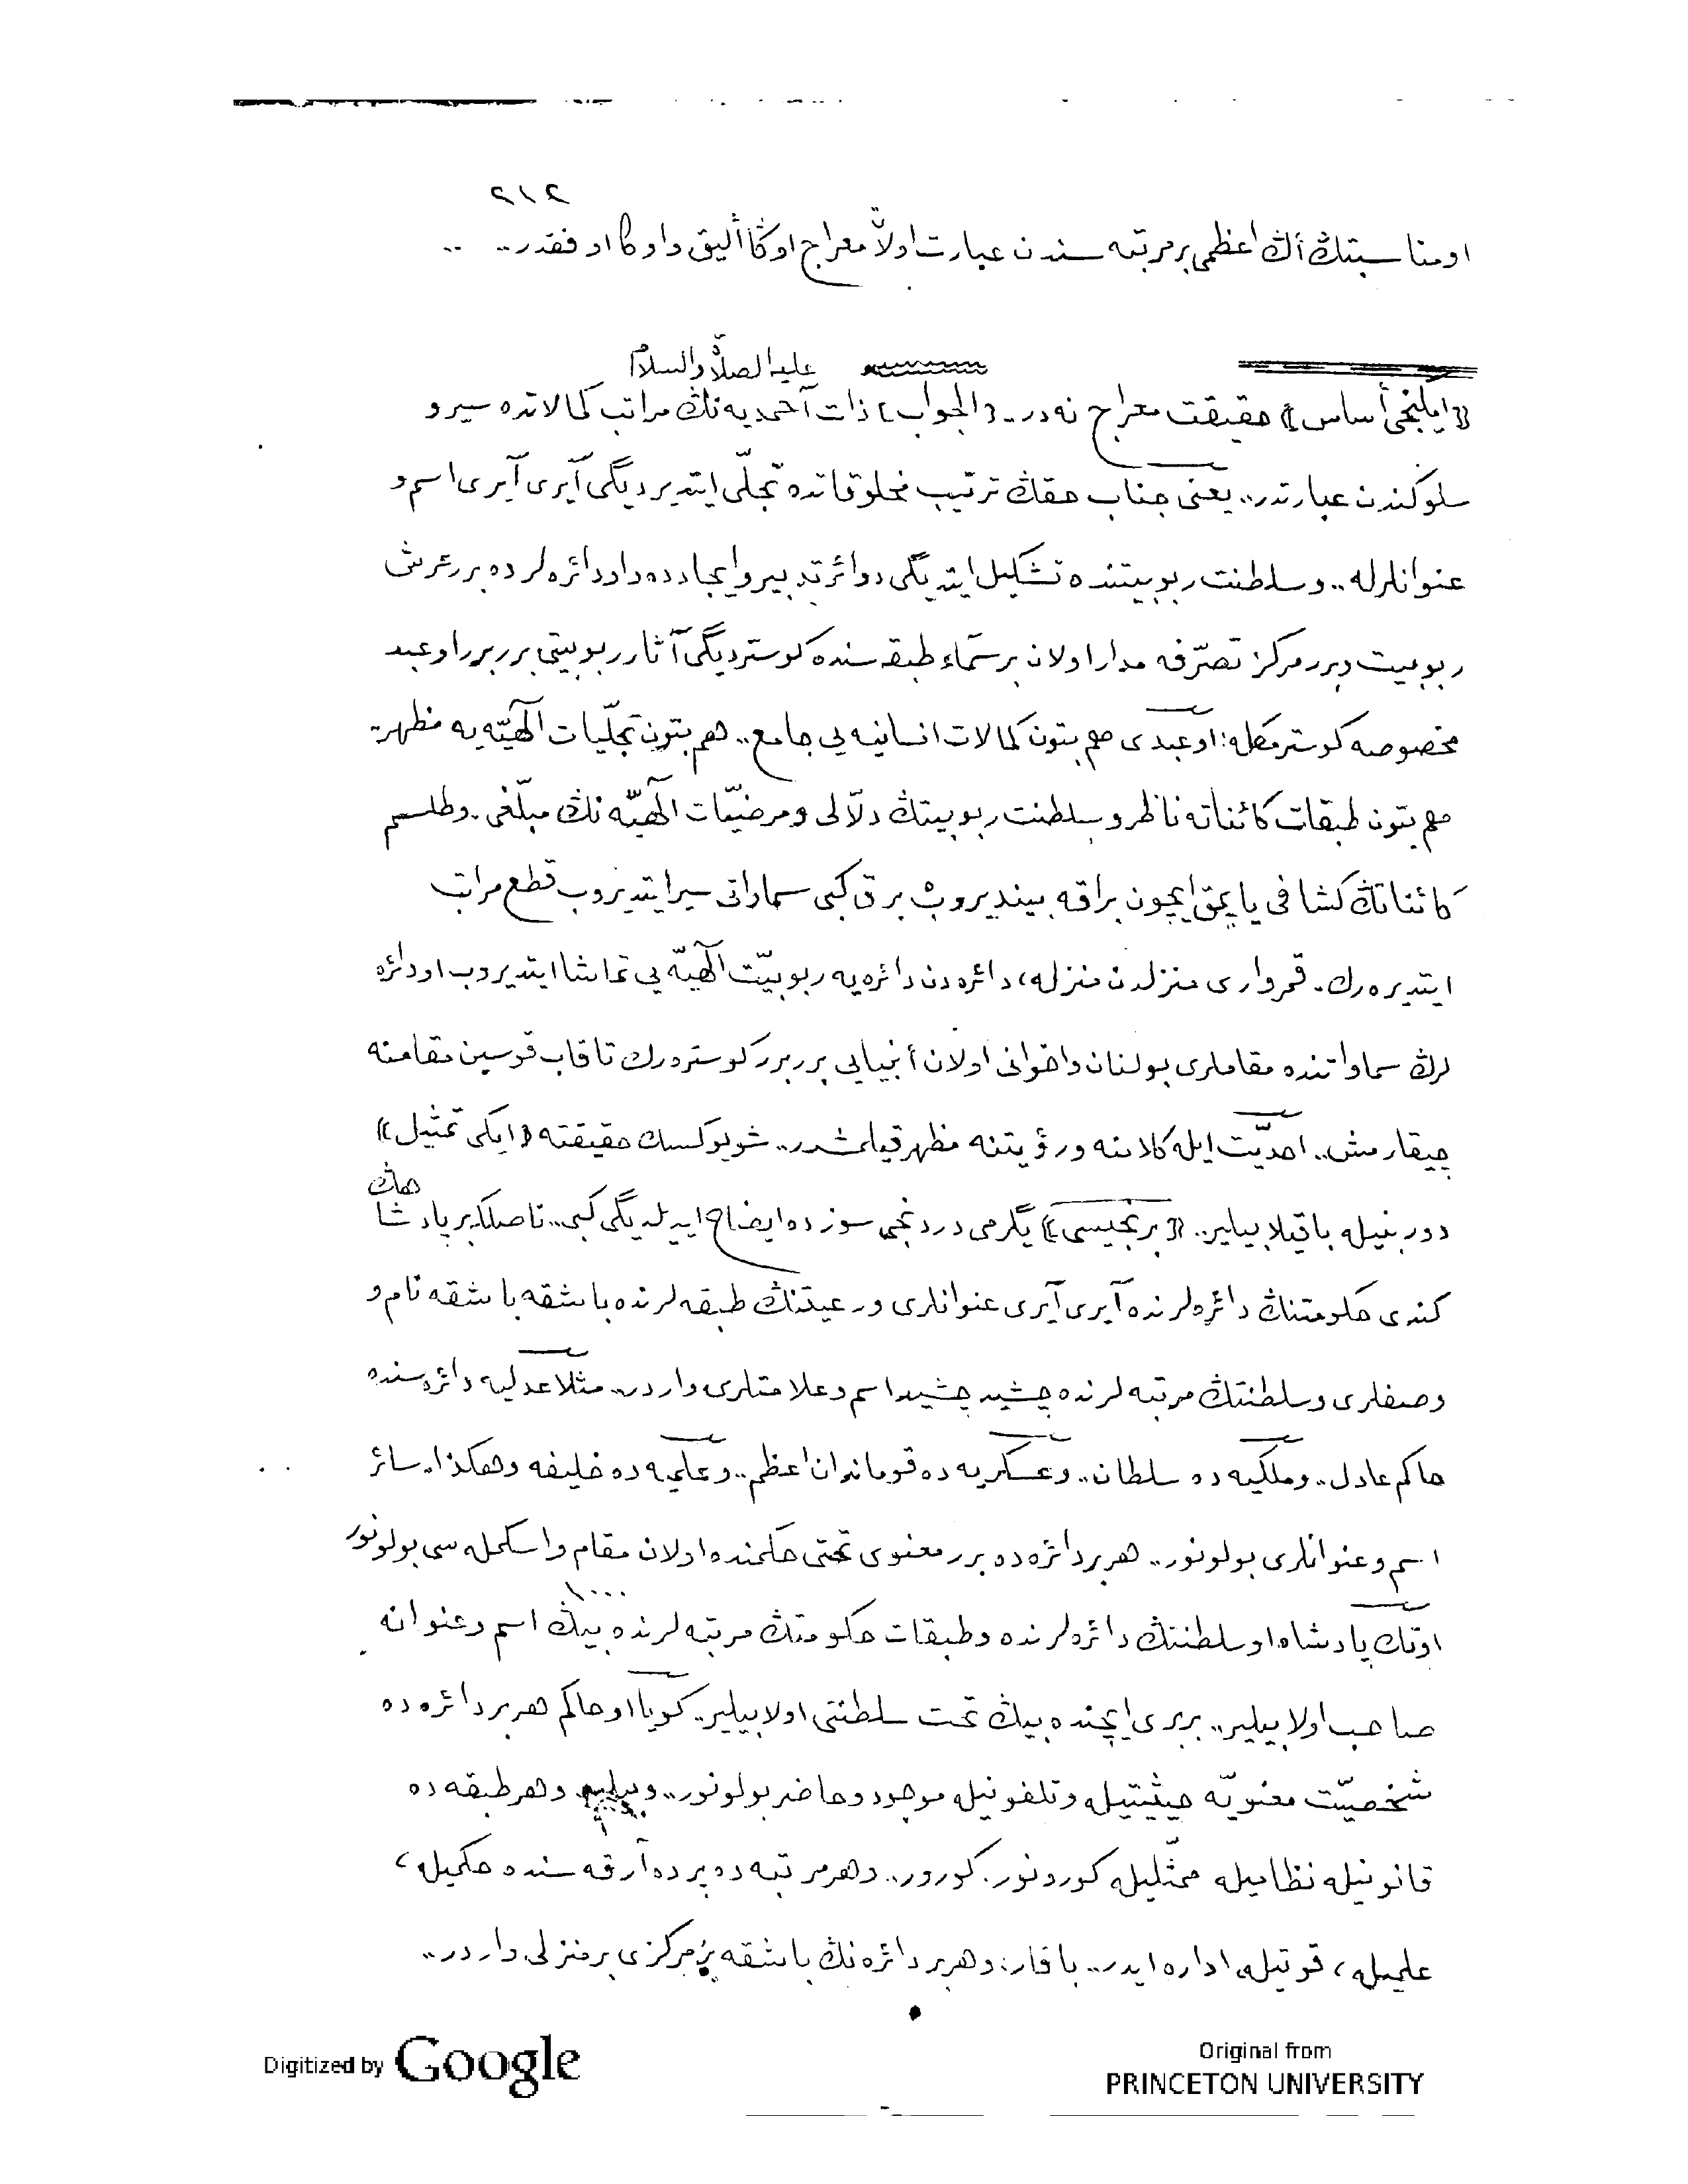 ٢١٢
او مناسبتڭ أڭ اعظمى بر مرتبه سندن عبارت اولاّ معراج اوڭا أليق و اوڭا اوفقدر..
عليه الصلاة والسلام
﴿ايكنجى أساس﴾ حقيقت معراج نه در.. ﴿الجواب﴾ ذات آحمديه نڭ مراتب كمالاتده سير و
سلوكندن عبارتدر.. يعنى جناب حقڭ ترتيب مخلوقاتده تجلّى ايتديرديگى آيرى آيرى اسم و
عنوانلرله.. و سلطنت ربوبيتنده تشكيل ايتديگى دوائر تدبير و ايجادده و او دائره لرده برر عرش
ربوبيت و برر مركز تصرّفه مدار اولان بر سمآء طبقه سنده كوسترديگى آثار ربوبيتى برر برر او عبد
مخصوصه كوسترمكله: او عبدى هم بتون كمالات انسانيه يى جامع.. هم بتون تجلّيات الٓهيّه يه مظهر-
هم بتون طبقات كائناته ناظر و سلطنت ربوبيتڭ دلّالى و مرضيّات الٓهيّه نڭ مبلّغى. و طلسم
كائناتڭ كشافى ياپمق ايچون براقه بينديروب برق كبى سماواتى سير ايتديروب قطع مراتب
ايتديره رك. قمروارى منزلدن منزله، دائره دن دائره يه ربوبيّت الٓهيّه يى تماشا ايتديروب او دائره
لرڭ سماواتنده مقاملرى بولنان و اخوانى اولان أنبيايى برر برر كوستره رك تا قاب قوسين مقامنه
چيقارمش.. احديّت ايله كلامنه و رؤيتنه مظهر قيلمشدر.. شو يوكسك حقيقته ﴿ايكى تمثيل﴾
دوربنيله باقيلابيلير.. ﴿برنجيسى﴾ يگرمى دردنجى سوزده ايضاح ايديلديگى كبى.. ناصلكه بر پادشاهڭ
كندى حكومتنڭ دائره لرنده آيرى آيرى عنوانلرى و رعيتنڭ طبقه لرنده باشقه باشقه نام و
وصفلرى و سلطنتڭ مرتبه لرنده چشيد چشيد اسم و علامتلرى واردر.. مثلا عدليه دائره سنده
حاكم عادل.. و ملكيه ده سلطان.. و عسكريه ده قوماندان اعظم.. و علميه ده خليفه و هكذا.. سائر
اسم و عنوانلرى بولونور.. هر بر دائره ده برر معنوى تختى حكمنده اولان مقام و اسكمله سى بولونور
١٠٠٠
او تك پادشاه، او سلطنتڭ دائره لرنده و طبقات حكومتڭ مرتبه لرنده بيڭ اسم و عنوانه
صاحب اولابيلير.. بربرى ايچنده بيڭ تخت سلطنتى اولابيلير.. كويا او حاكم هر بر دائره ده
شخصيّت معنويّه حيثيتيله و تلفونيله موجود و حاضر بولونور.. و بيلير و هر طبقه ده
قانونيله نظاميله ممثّليله كورونور. كورور.. و هر مرتبه ده پرده آرقه سنده حكميله،
علميله، قوتيله، اداره ايدر.. باقار: و هر بر دائره نڭ باشقه بر مركزى بر منزلى واردر..
Digitized by Google
Original from
PRINCETON UNIVERSITY